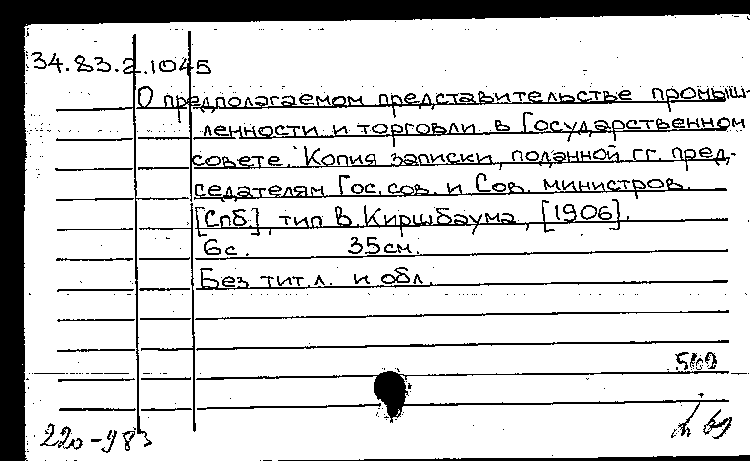 34.83.2.1045
О предполагаемом представительстве промыш-
ленности и торговли в Государственном
совете. Копия записки, поданной гг. пред-
седателям Гос. сов. и Сов. министров.
[Спб], тип В. Киршбаума, [1906].
6с. 35см.
Без тит. л. и обл.
220-983